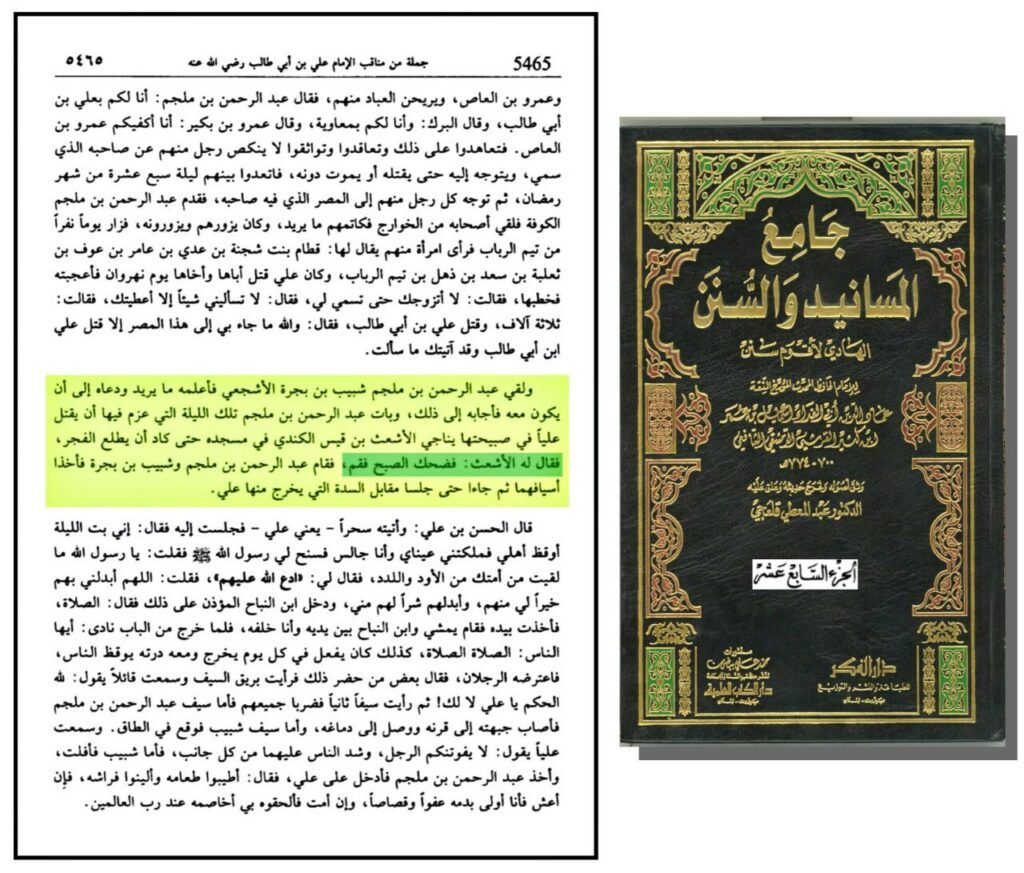 5465 جملة من مناقب الإمام علي بن أبي طالب رضي الله عنه ٥٤٦٥
وعمرو بن العاص، ويريحن العباد منهم، فقال عبد الرحمن بن ملجم: أنا لكم بعلي بن
أبي طالب، وقال البرك: وأنا لكم بمعاوية، وقال عمرو بن بكير: أنا أكفيكم عمرو بن
العاص. فتعاهدوا على ذلك وتعاقدوا وتواثقوا لا ينكص رجل منهم عن صاحبه الذي
سمي، ويتوجه إليه حتى يقتله أو يموت دونه، فاتعدوا بينهم ليلة سبع عشرة من شهر
رمضان، ثم توجه كل رجل منهم إلى المصر الذي فيه صاحبه، فقدم عبد الرحمن بن ملجم
الكوفة فلقي أصحابه من الخوارج فكاتمهم ما يريد، وكان يزورهم ويزورونه، فزار يوماً نفراً
من تيم الرباب فرأى امرأة منهم يقال لها: قطام بنت شجنة بن عدي بن عامر بن عوف بن
ثعلبة بن سعد بن ذهل بن تيم الرباب، وكان علي قتل أباها وأخاها يوم نهروان فأعجبته
فخطبها، فقالت: لا أتزوجك حتى تسمي لي، فقال: لا تسأليني شيئاً إلا أعطيتك، فقالت:
ثلاثة آلاف، وقتل علي بن أبي طالب، فقال: والله ما جاء بي إلى هذا المصر إلا قتل علي
ابن أبي طالب وقد آتيتك ما سألت.
ولقي عبد الرحمن بن ملجم شبيب بن بجرة الأشجعي فأعلمه ما يريد ودعاه إلى أن
يكون معه فأجابه إلى ذلك، وبات عبد الرحمن بن ملجم تلك الليلة التي عزم فيها أن يقتل
علياً في صبيحتها يناجي الأشعث بن قيس الكندي في مسجده حتى كاد أن يطلع الفجر،
فقال له الأشعث: فضحك الصبح فقم، فقام عبد الرحمن بن ملجم وشبيب بن بجرة فأخذا
أسيافهما ثم جاءا حتى جلسا مقابل السدة التي يخرج منها علي.
قال الحسن بن علي: وأتيته سحراً - يعني علي - فجلست إليه فقال: إني بت الليلة
أوقظ أهلي فملكتني عيناي وأنا جالس فسنح لي رسول الله ﷺ فقلت: يا رسول الله ما
لقيت من أمتك من الأود واللدد، فقال لي: «ادع الله عليهم»، فقلت: اللهم أبدلني بهم
خيراً لي منهم، وأبدلهم شراً لهم مني، ودخل ابن النباح المؤذن على ذلك فقال: الصلاة،
فأخذت بيده فقام يمشي وابن النباح بين يديه وأنا خلفه، فلما خرج من الباب نادى: أيها
الناس: الصلاة الصلاة، كذلك كان يفعل في كل يوم يخرج ومعه درته يوقظ الناس،
فاعترضه الرجلان، فقال بعض من حضر ذلك فرأيت بريق السيف وسمعت قائلاً يقول: لله
الحكم يا علي لا لك! ثم رأيت سيفاً ثانياً فضربا جميعهم فأما سيف عبد الرحمن بن ملجم
فأصاب جبهته إلى قرنه ووصل إلى دماغه، وأما سيف شبيب فوقع في الطاق. وسمعت
علياً يقول: لا يفوتنكم الرجل، وشد الناس عليهما من كل جانب، فأما شبيب فأفلت،
وأخذ عبد الرحمن بن ملجم فأدخل على علي، فقال: أطيبوا طعامه وألينوا فراشه، فإن
أعش فأنا أولى بدمه عفواً وقصاصاً، وإن أمت فألحقوه بي أخاصمه عند رب العالمين.
جامع
المسانيد والسنن
الهادي لأقوم سنن
للإمام الحافظ المحدث المؤرخ الثقة
عماد الدين أبي الفداء إسماعيل بن عمر
ابن كثير القرشي الدمشقي الشافعي
٧٠٠ - ٧٧٤هـ
وثق أصوله وخرج حديثه وعلق عليه
الدكتور عبد المعطي قلعجي
الجزء السابع عشر
منشورات
محمد علي بيضون
دار الكتب العلمية
بيروت - لبنان
دار الفكر
للطباعة والنشر والتوزيع
بيروت - لبنان